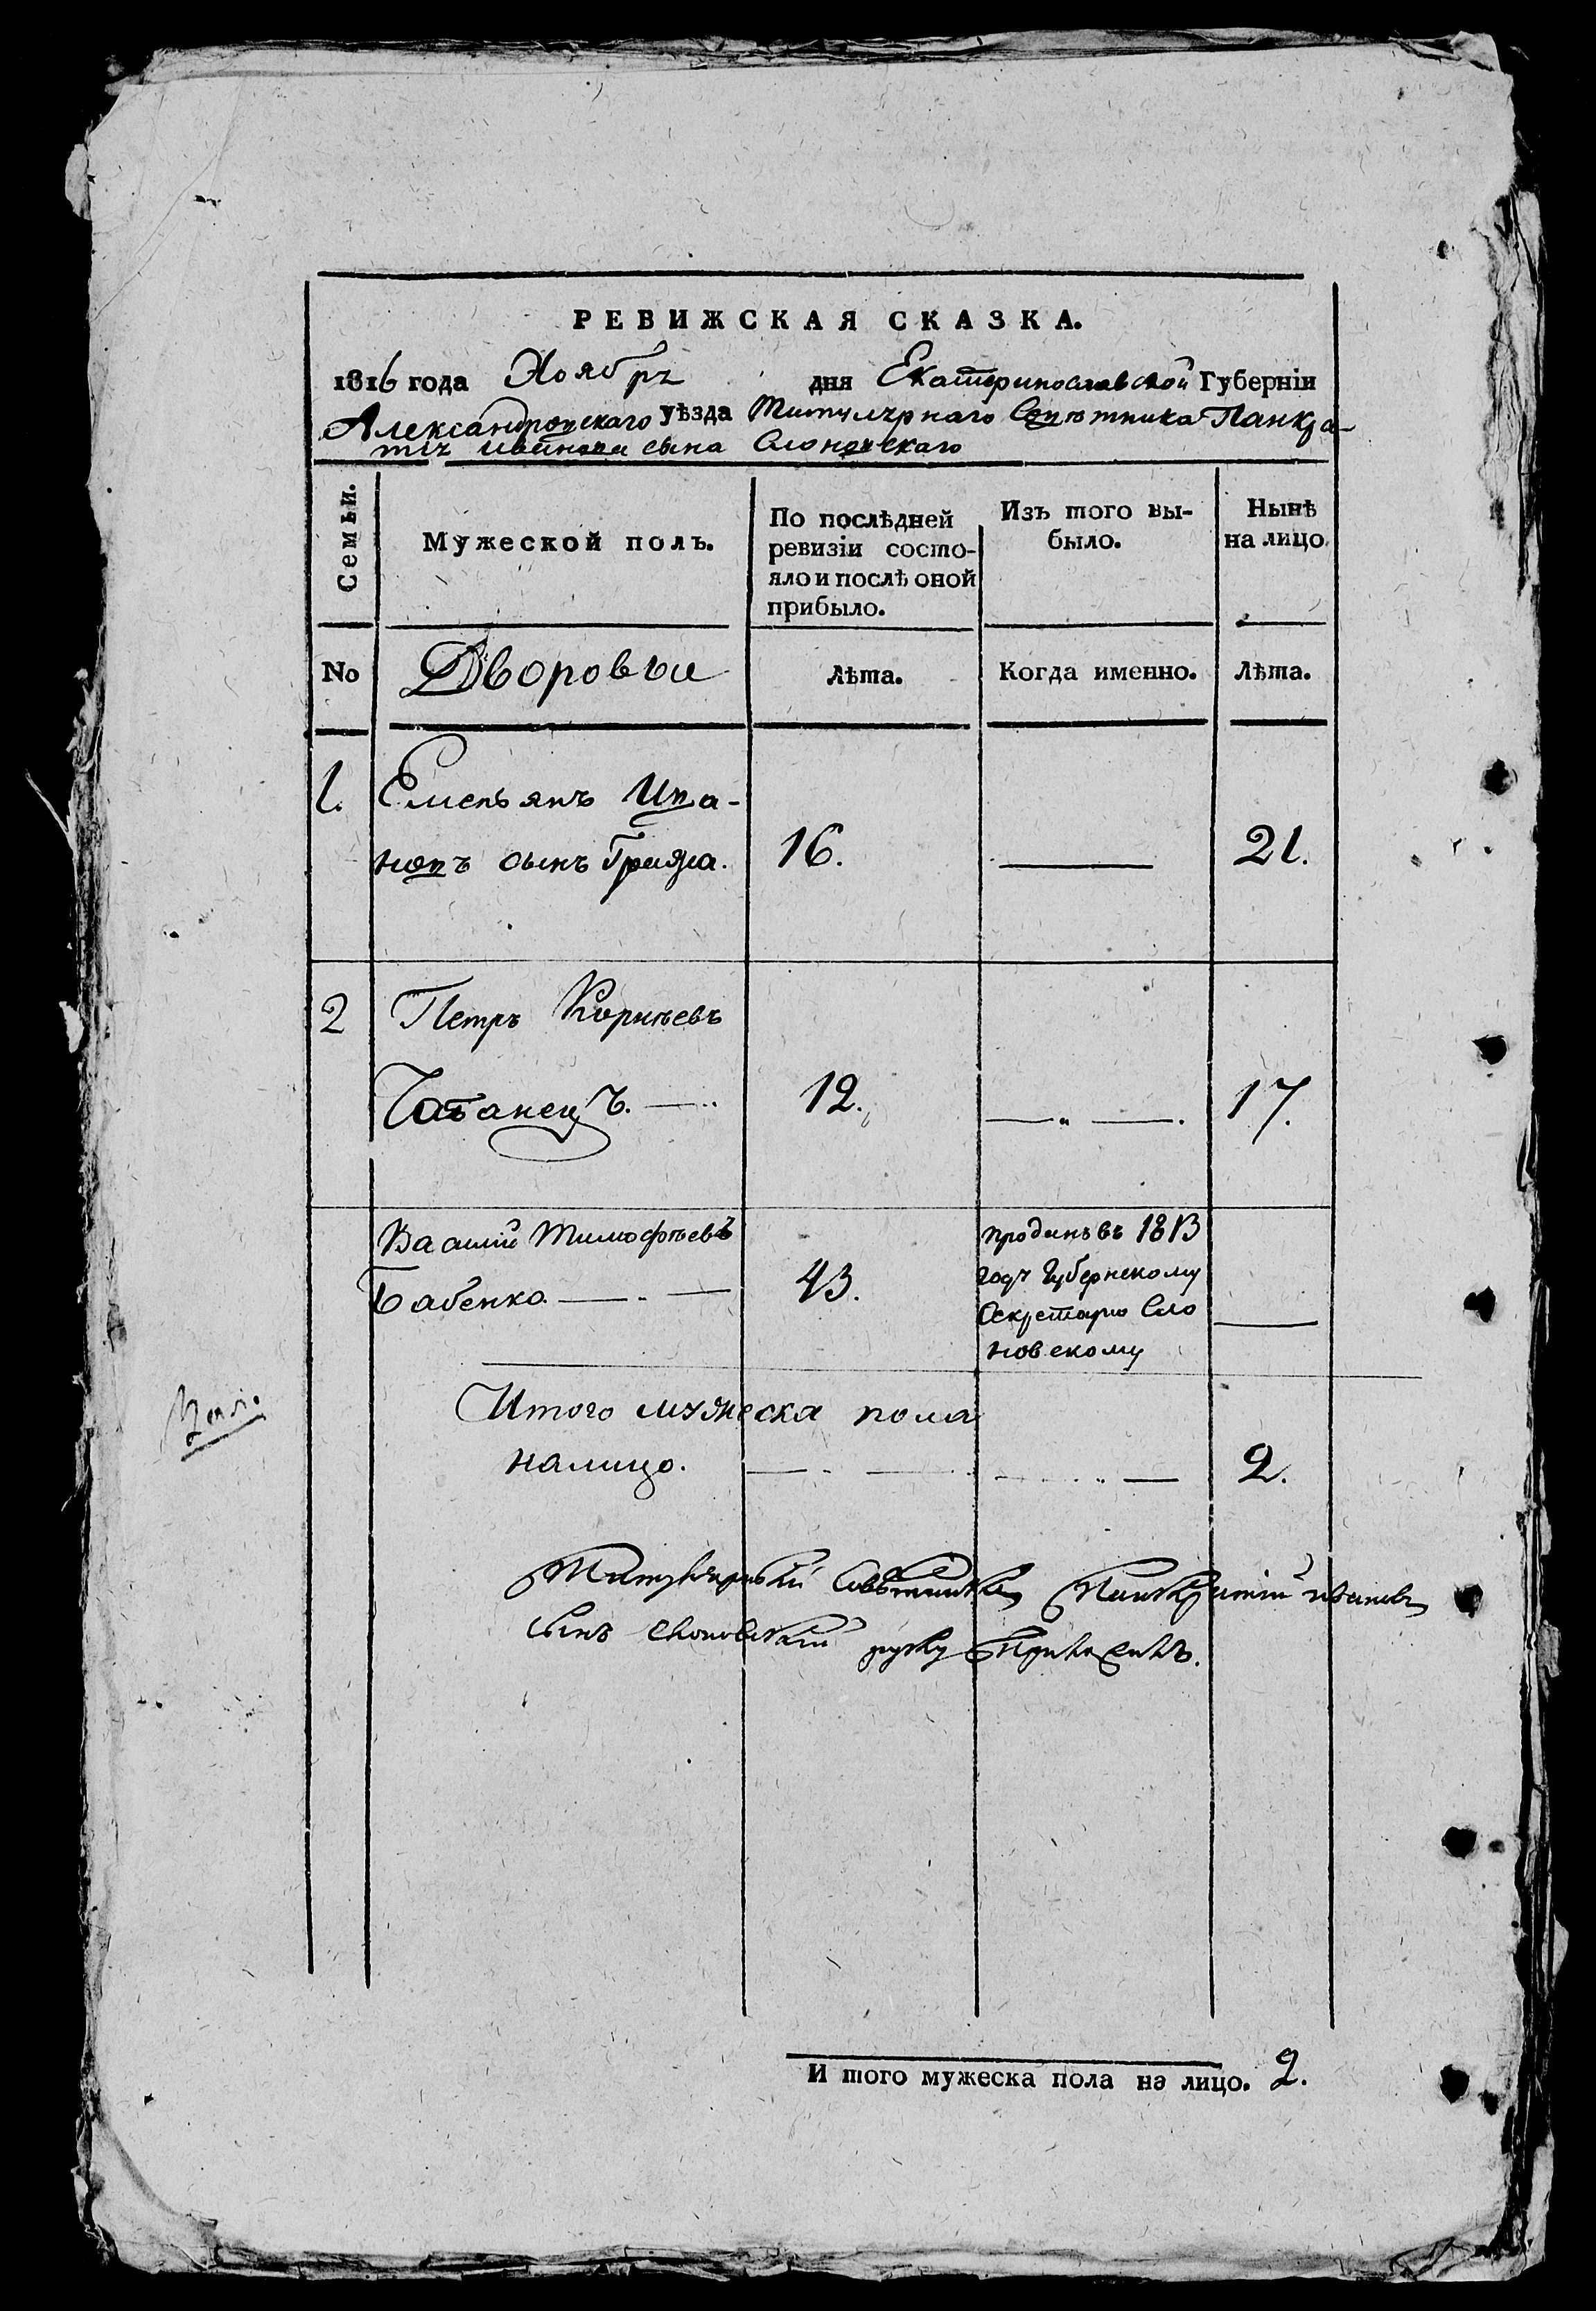 РЕВИЖСКАЯ СКАЗКА.
1816 года Ноября дня Екатеринославской Губерніи
Александровскаго уѣзда Титулярнаго Совѣтника Панкра-
тія Иванова сына Слоновскаго
Семьи.
Мужеской полъ.
По послѣдней
ревизіи состо-
яло и послѣ оной
прибыло.
Изъ того вы-
было.
Нынѣ
на лицо
No
Дворовыи
лѣта.
Когда именно.
Лѣта.
1. Емельянъ Ива-
новъ сынъ 16. 21.
2 Петръ Корнѣевъ
Чабанецъ. 12. 17.
Василій Тимофѣевъ
Бабенко. 43.
проданъ въ 1813
году Губернскому
Секретарю Сло
новскому
Итого мужеска пола
налицо. 2.
Титулярный Совѣтникъ Панкратій Ивановъ
сынъ Слоновскій руку приложилъ.
И того мужеска пола на лицо. 2.